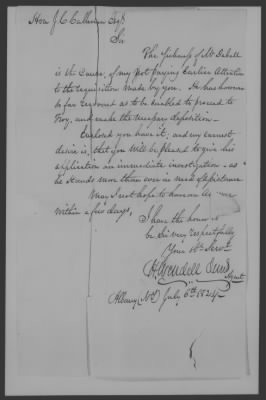 Hon J. C. Calhoun Esqr
Sir
The Sickness of Mr
is the Cause, of my not paying Earlier Attention
to the requisition made by you. He has however
so far recovered as to be enabled to proceed to
Troy, and make the necessary deposition —
Enclosed you have it; and my earnest
desire is, that you will be pleased to give his
application an immediate investigation — as
he stands more than ever in need of assistance
May I not hope to hear
within a few days,
I have the honor to
be Sir very respectfully
Your Ob. Servt.
H Wendell
Agent
Albany (NY) July 6th 1824